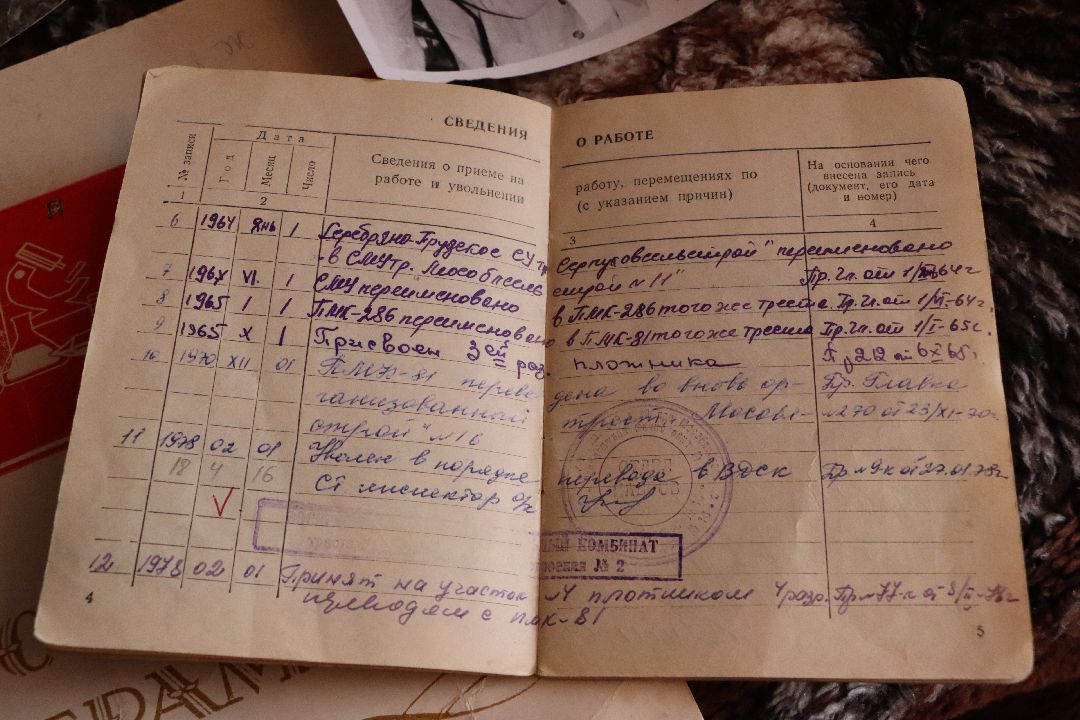 СВЕДЕНИЯ О РАБОТЕ
№ записи
Дата
Год Месяц Число
Сведения о приеме на работу, перемещениях по
работе и увольнении (с указанием причин)
На основании чего
внесена запись
(документ, его дата
и номер)
1 2 3 4
6 1964 янь 1 Серебряно-Прудское СУ тр. Серпуховсельстрой" переименовано
в СМУ тр. Мособлсельстрой №11" Пр. Гл. от 1/ 64г
7 1964 VI 1 СМУ переименовано в ПМК-286 того же треста Пр. Гл. от 1/VI-64г
8 1965 1 1 ПМК-286 переименовано в ПМК-81 того же треста Пр. Гл. от 1/I-65г.
9 1965 X 1 Присвоен 3ей раз. плотника 212 от 6 X 65г.
10 1970 XII 01 ПМК-81 переведена во вновь ор- Пр. Главка
ганизованный трест Мособл- №270 от 23/XI-70г
строй" №16
11 1978 02 01 Уволен в порядке перевода в ВДСК Пр №9к от 27.01.78г
18 4 16 Ст инспектор о/к
КОМБИНАТ
№ 2
12 1978 02 01 Принят на участок №4 плотником 4 разр. Пр №77-к от 8/II-78г
переводом с ПМК-81
4
5